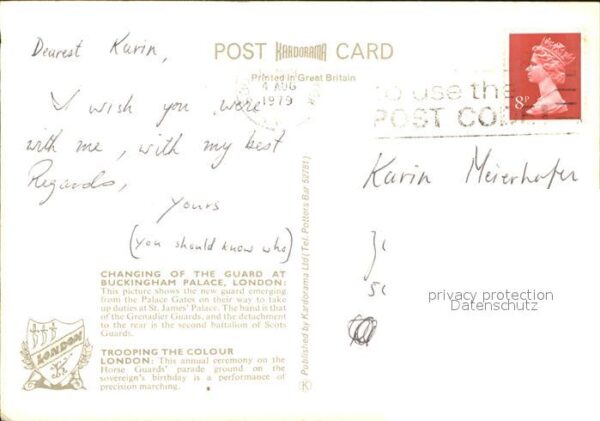 Dearest Karin,
I wish you were
with me, with my best
Regards,
Yours
(you should know who)
CHANGING OF THE GUARD AT
BUCKINGHAM PALACE, LONDON:
This picture shows the new guard emerging
from the Palace Gates on their way to take
up duties at St. James' Palace. The band is that
of the Grenadier Guards, and the detachment
to the rear is the second battalion of Scots
Guards.
LONDON
TROOPING THE COLOUR
LONDON: This annual ceremony on the
Horse Guards' parade ground on the
sovereign's birthday is a performance of
precision marching.
POST KARDORAMA CARD
Printed in Great Britain
4 AUG
1979
to use the
POST CODE
8P
Published by Kardorama Ltd (Tel. Potters Bar 52781)
K
Karin Meierhofer
privacy protection
Datenschutz